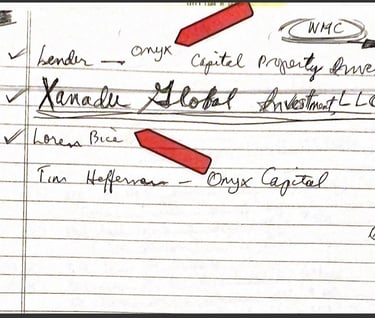 WMC
Lender — Onyx Capital Property
Xanadu Global Investment, LLC
Loren Bice
Tim Heffernan — Onyx Capital